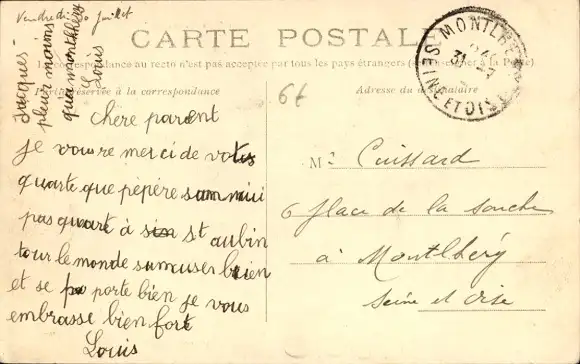 Vendredi 30 Juillet
Jacques
pleur moins
qua montlhery
Louis
CARTE POSTALE
La correspondance au recto n'est pas acceptée par tous les pays étrangers (se renseigner à la Poste)
Partie réservée à la correspondance
Adresse du destinataire
MONTLHERY
31 -7
SEINE ET OISE
6t
chère parent
je vous re merci de votes
quarte que pèpère sammui
pas quarte à st aubin
tour le monde samuser bien
et se porte bien je vous
embrasse bien fort
Louis
M. Cuissard
6 place de la souche
à Montlhéry
Seine et Oise